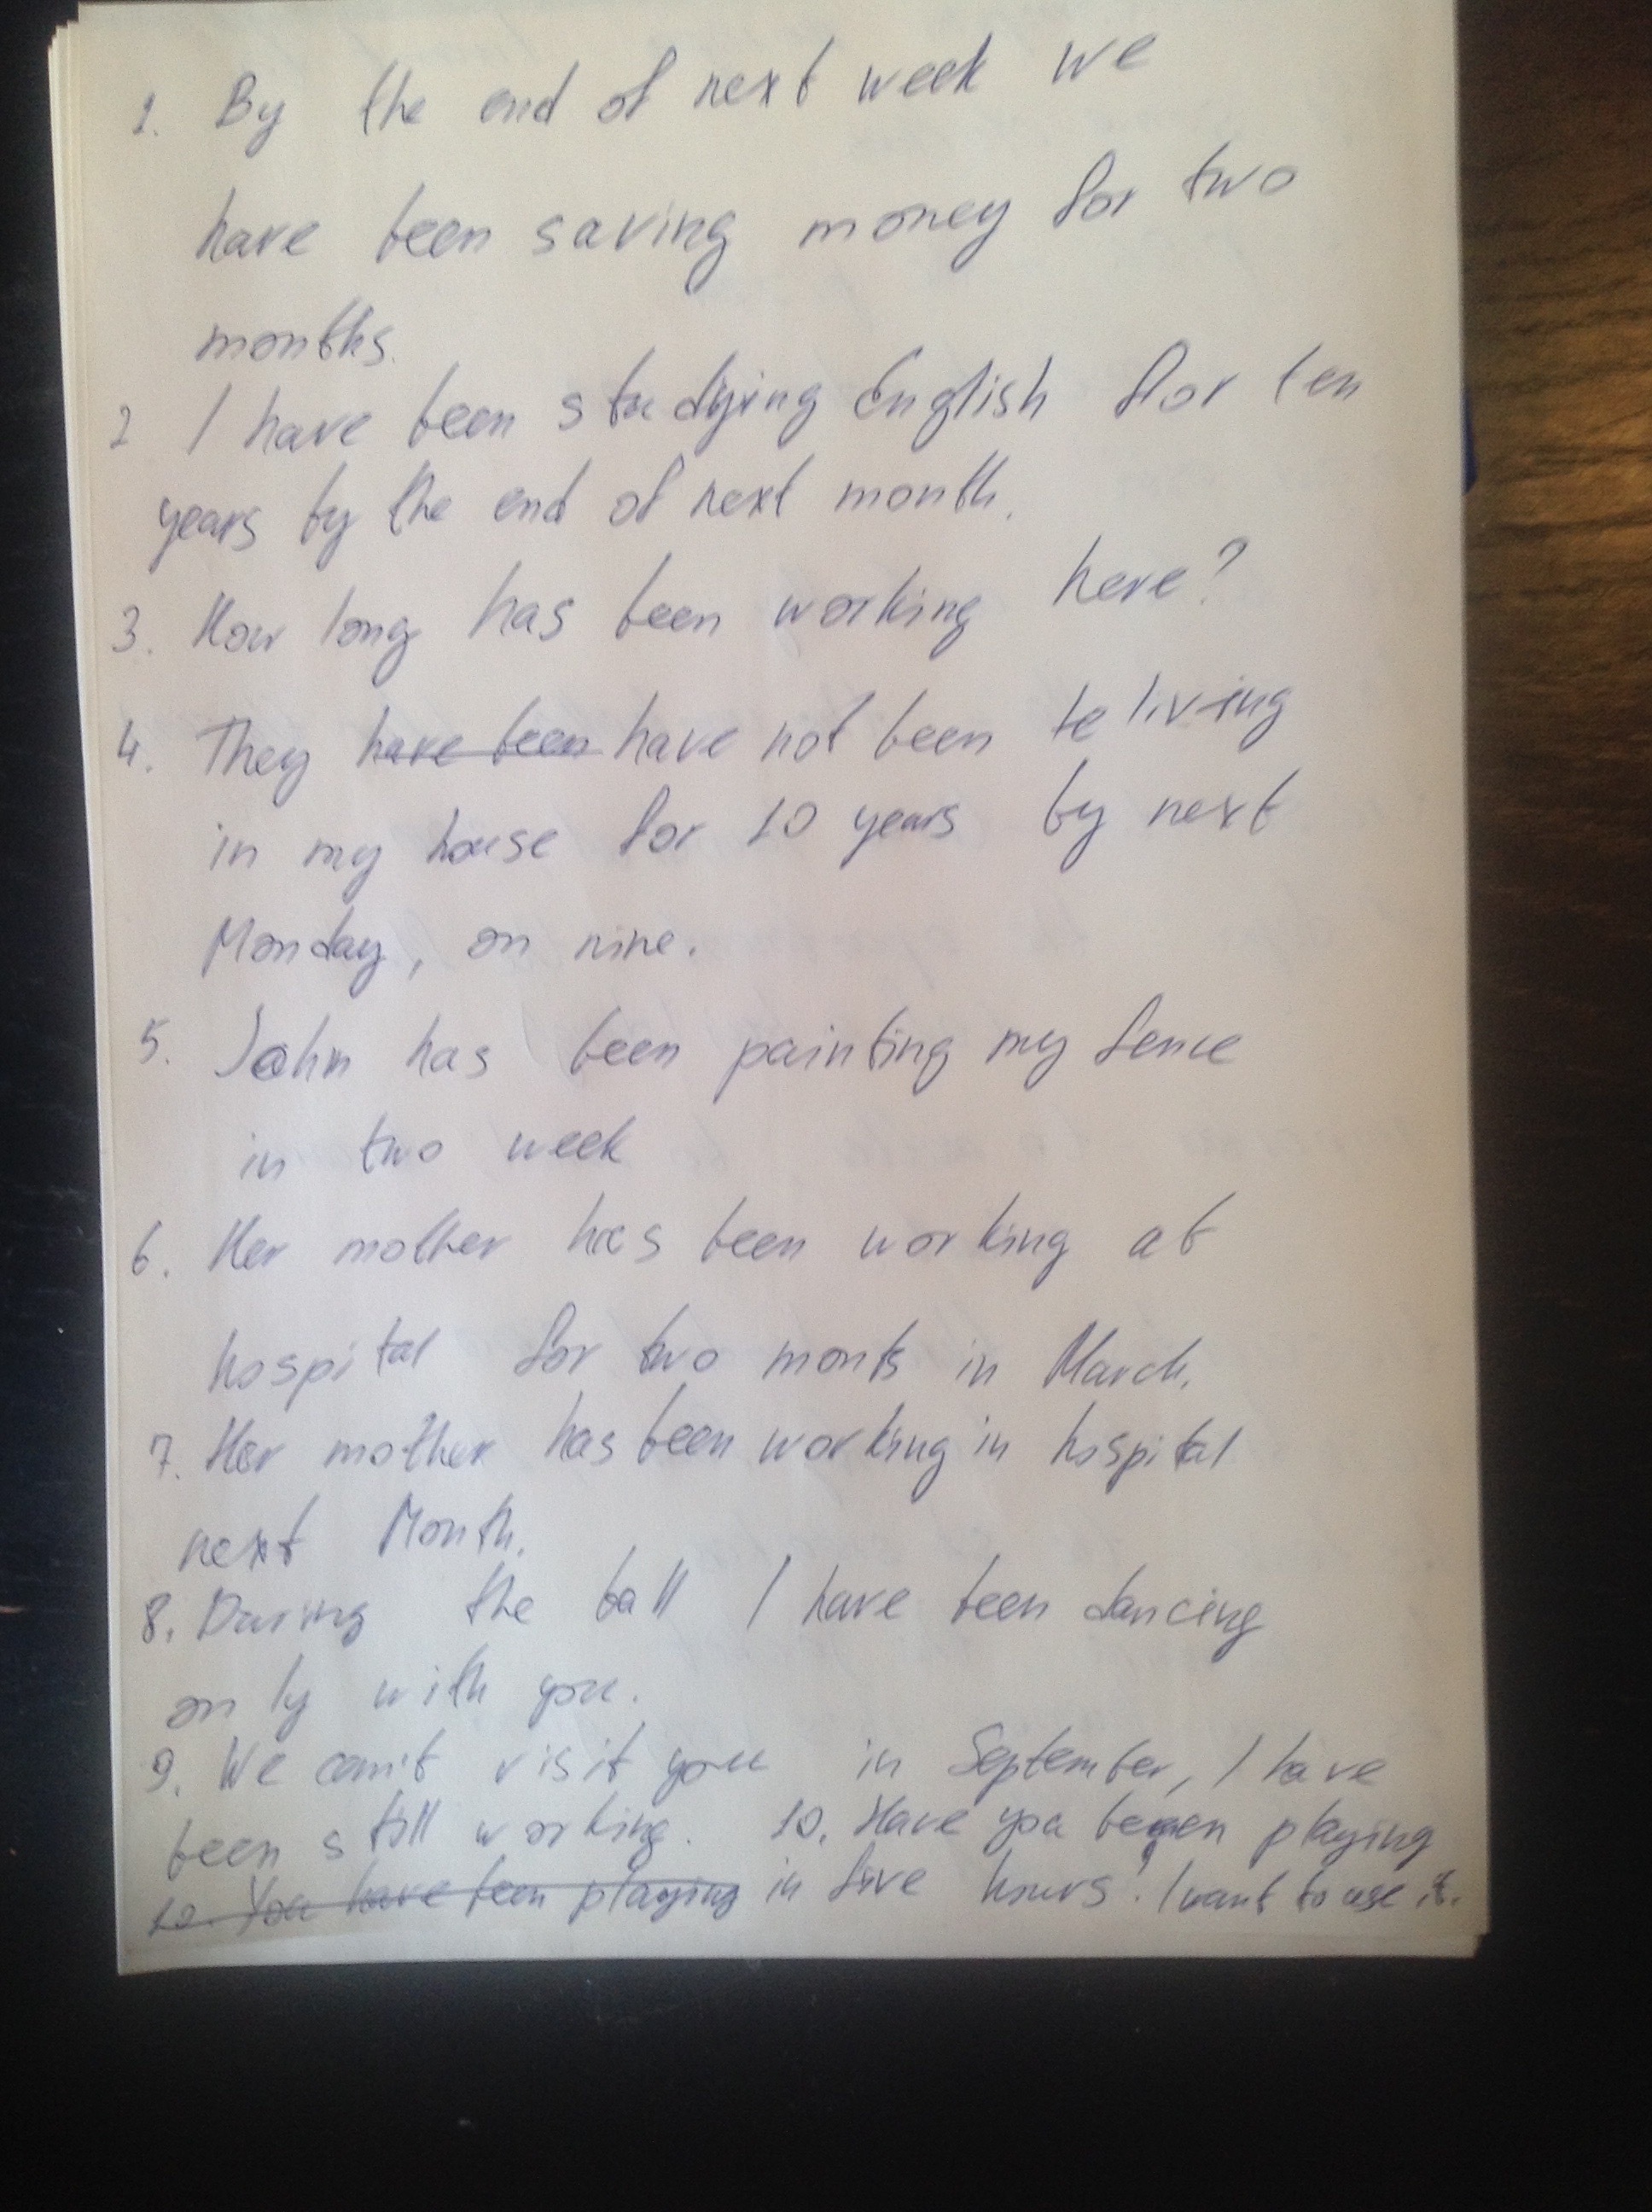 1. By the end of next week we
have been saving money for two
months.
2 I have been studying English for ten
years by the end of next month.
3. How long has been working here?
4. They have been have not been te living
in my house for 10 years by next
Monday, on nine.
5. John has been painting my fence
in two week
6. Her mother has been working at
hospital for two monts in March.
7. Her mother has been working in hospital
next Month.
8. During the ball I have been dancing
only with you.
9. We can't visit you in September, I have
been still working. 10. Have you been playing
10. You have been playing in five hours? I want to use it.